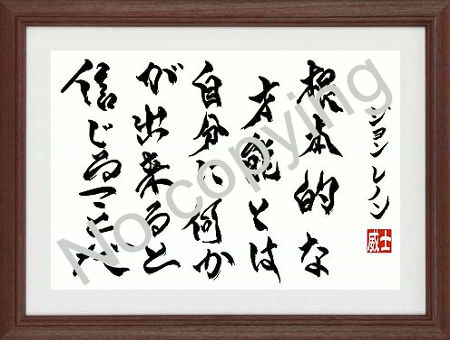 ジョン レノン
根本的な
才能とは
自分に何か
が出来ると
信じることだ
威士
No copying